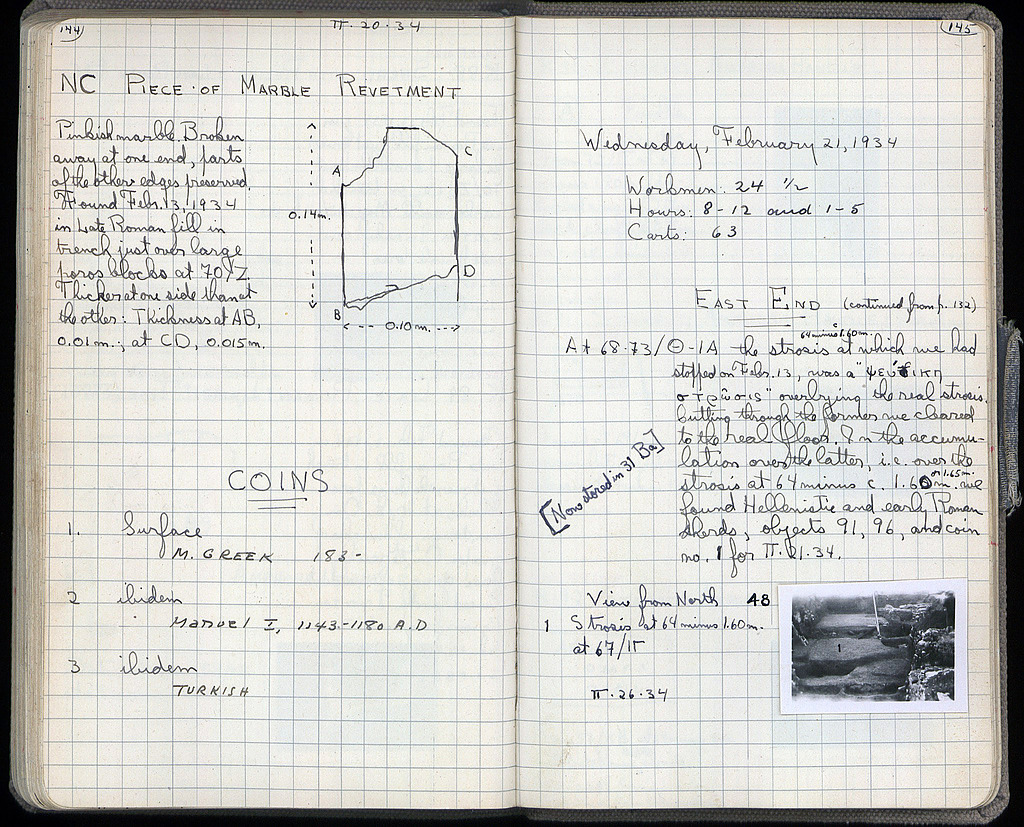 144
π·20·34
NC PIECE·OF MARBLE REVETMENT
Pinkish marble. Broken
away at one end, parts
of the other edges preserved.
Found Febr. 13, 1934
in Late Roman fill in
trench just over large
poros blocks at 70/Z.
Thicker at one side than at
the other: Thickness at AB,
0.01m.; at CD, 0.015m.
A
C
0.14m.
D
B
0.10m.
COINS
1. Surface
M. GREEK 183-
2 ibidem
Manuel I, 1143-1180 A.D
3 ibidem
TURKISH
145
Wednesday, February 21, 1934
Workmen: 24 1/2
Hours: 8-12 and 1-5
Carts: 63
EAST END (continued from p. 132)
64 minus c. 1.60m.
At 68-73/Θ-IA the strosis at which we had
stopped on Febr. 13, was a
στρῶσις" overlying the real strosis.
Cutting through the former we cleared
to the real floor. In the accumu-
lation over the latter, i.e. over the
or 1.65m.
strosis at 64 minus c. 1.60m. we
found Hellenistic and early Roman
sherds, objects 91, 96, and coin
no. 1 for π·21·34.
[Now stored in 31 Ba]
View from North 48
1 Strosis at 64 minus 1.60m.
at 67/ΙΓ
1
π·26·34